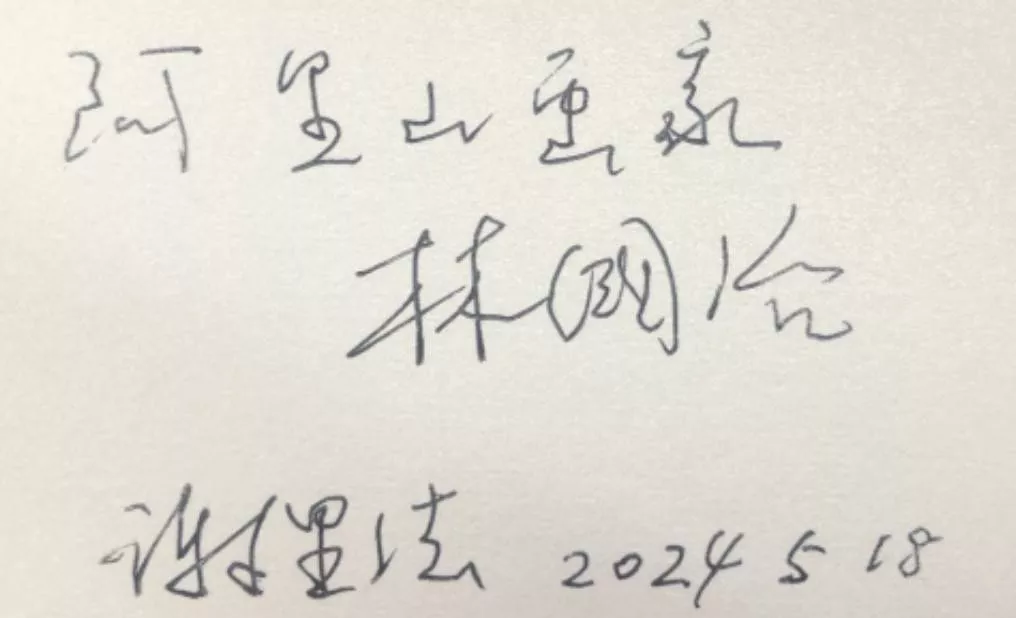 阿里山画家
林國治
谢里法 2024 5 18